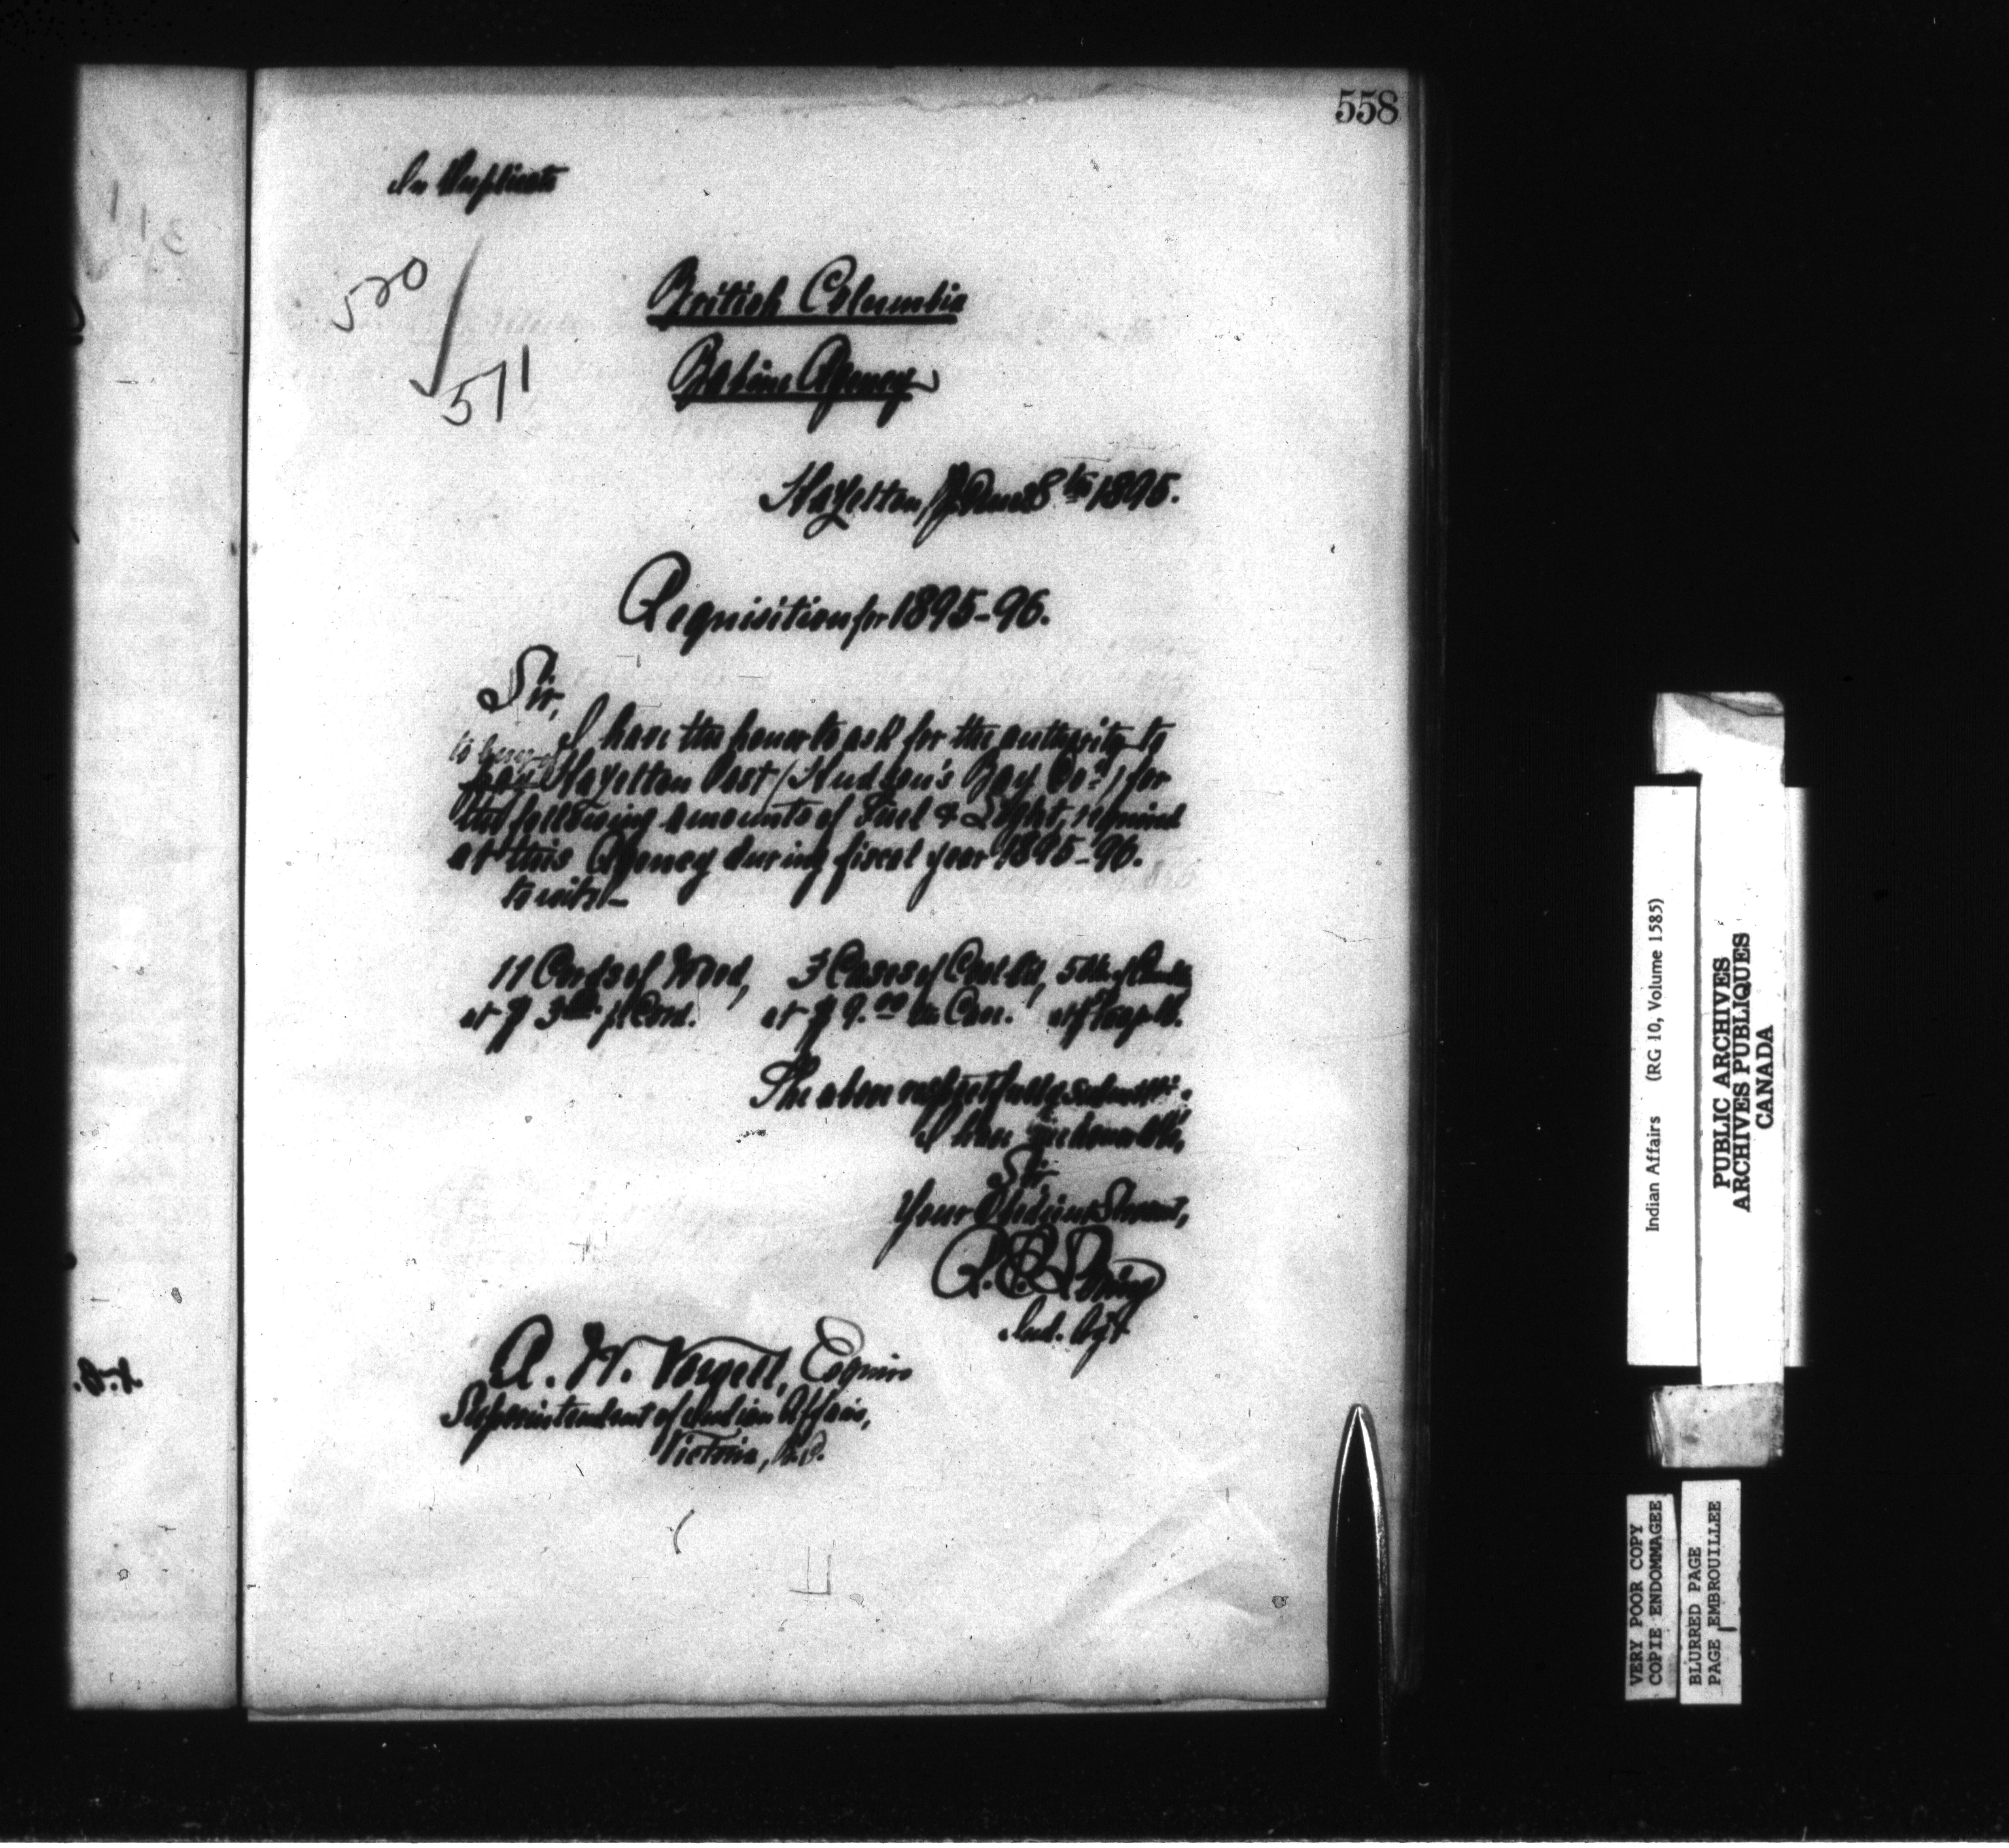 558
In Duplicate
520
571
British Columbia
Babine Agency
Hazelton, June 8th 1895.
Requisition for 1895-96.
Sir,
I have the honor to ask for the authority to
pay Hazelton Post (Hudson's Bay Co.,) for
the following amounts of Fuel & Light, required
at this Agency during fiscal year 1895-96.
to wit:-
11 Cords of Wood, 3 Cases of Coal Oil, 5 lbs of Candles
at $ 3 p. Cord. at $ 9.00 a Case. at p lb.
The above respectfully submitted.
I have the honor to be,
Sir
Your Obedient Servant,
R. E. Loring
Ind. Agt
A. W. Vowell, Esquire
Superintendent of Indian Affairs,
Victoria, B.C.
Indian Affairs (RG 10, Volume 1585)
PUBLIC ARCHIVES
ARCHIVES PUBLIQUES
CANADA
VERY POOR COPY
COPIE ENDOMMAGEE
BLURRED PAGE
PAGE EMBROUILLEE